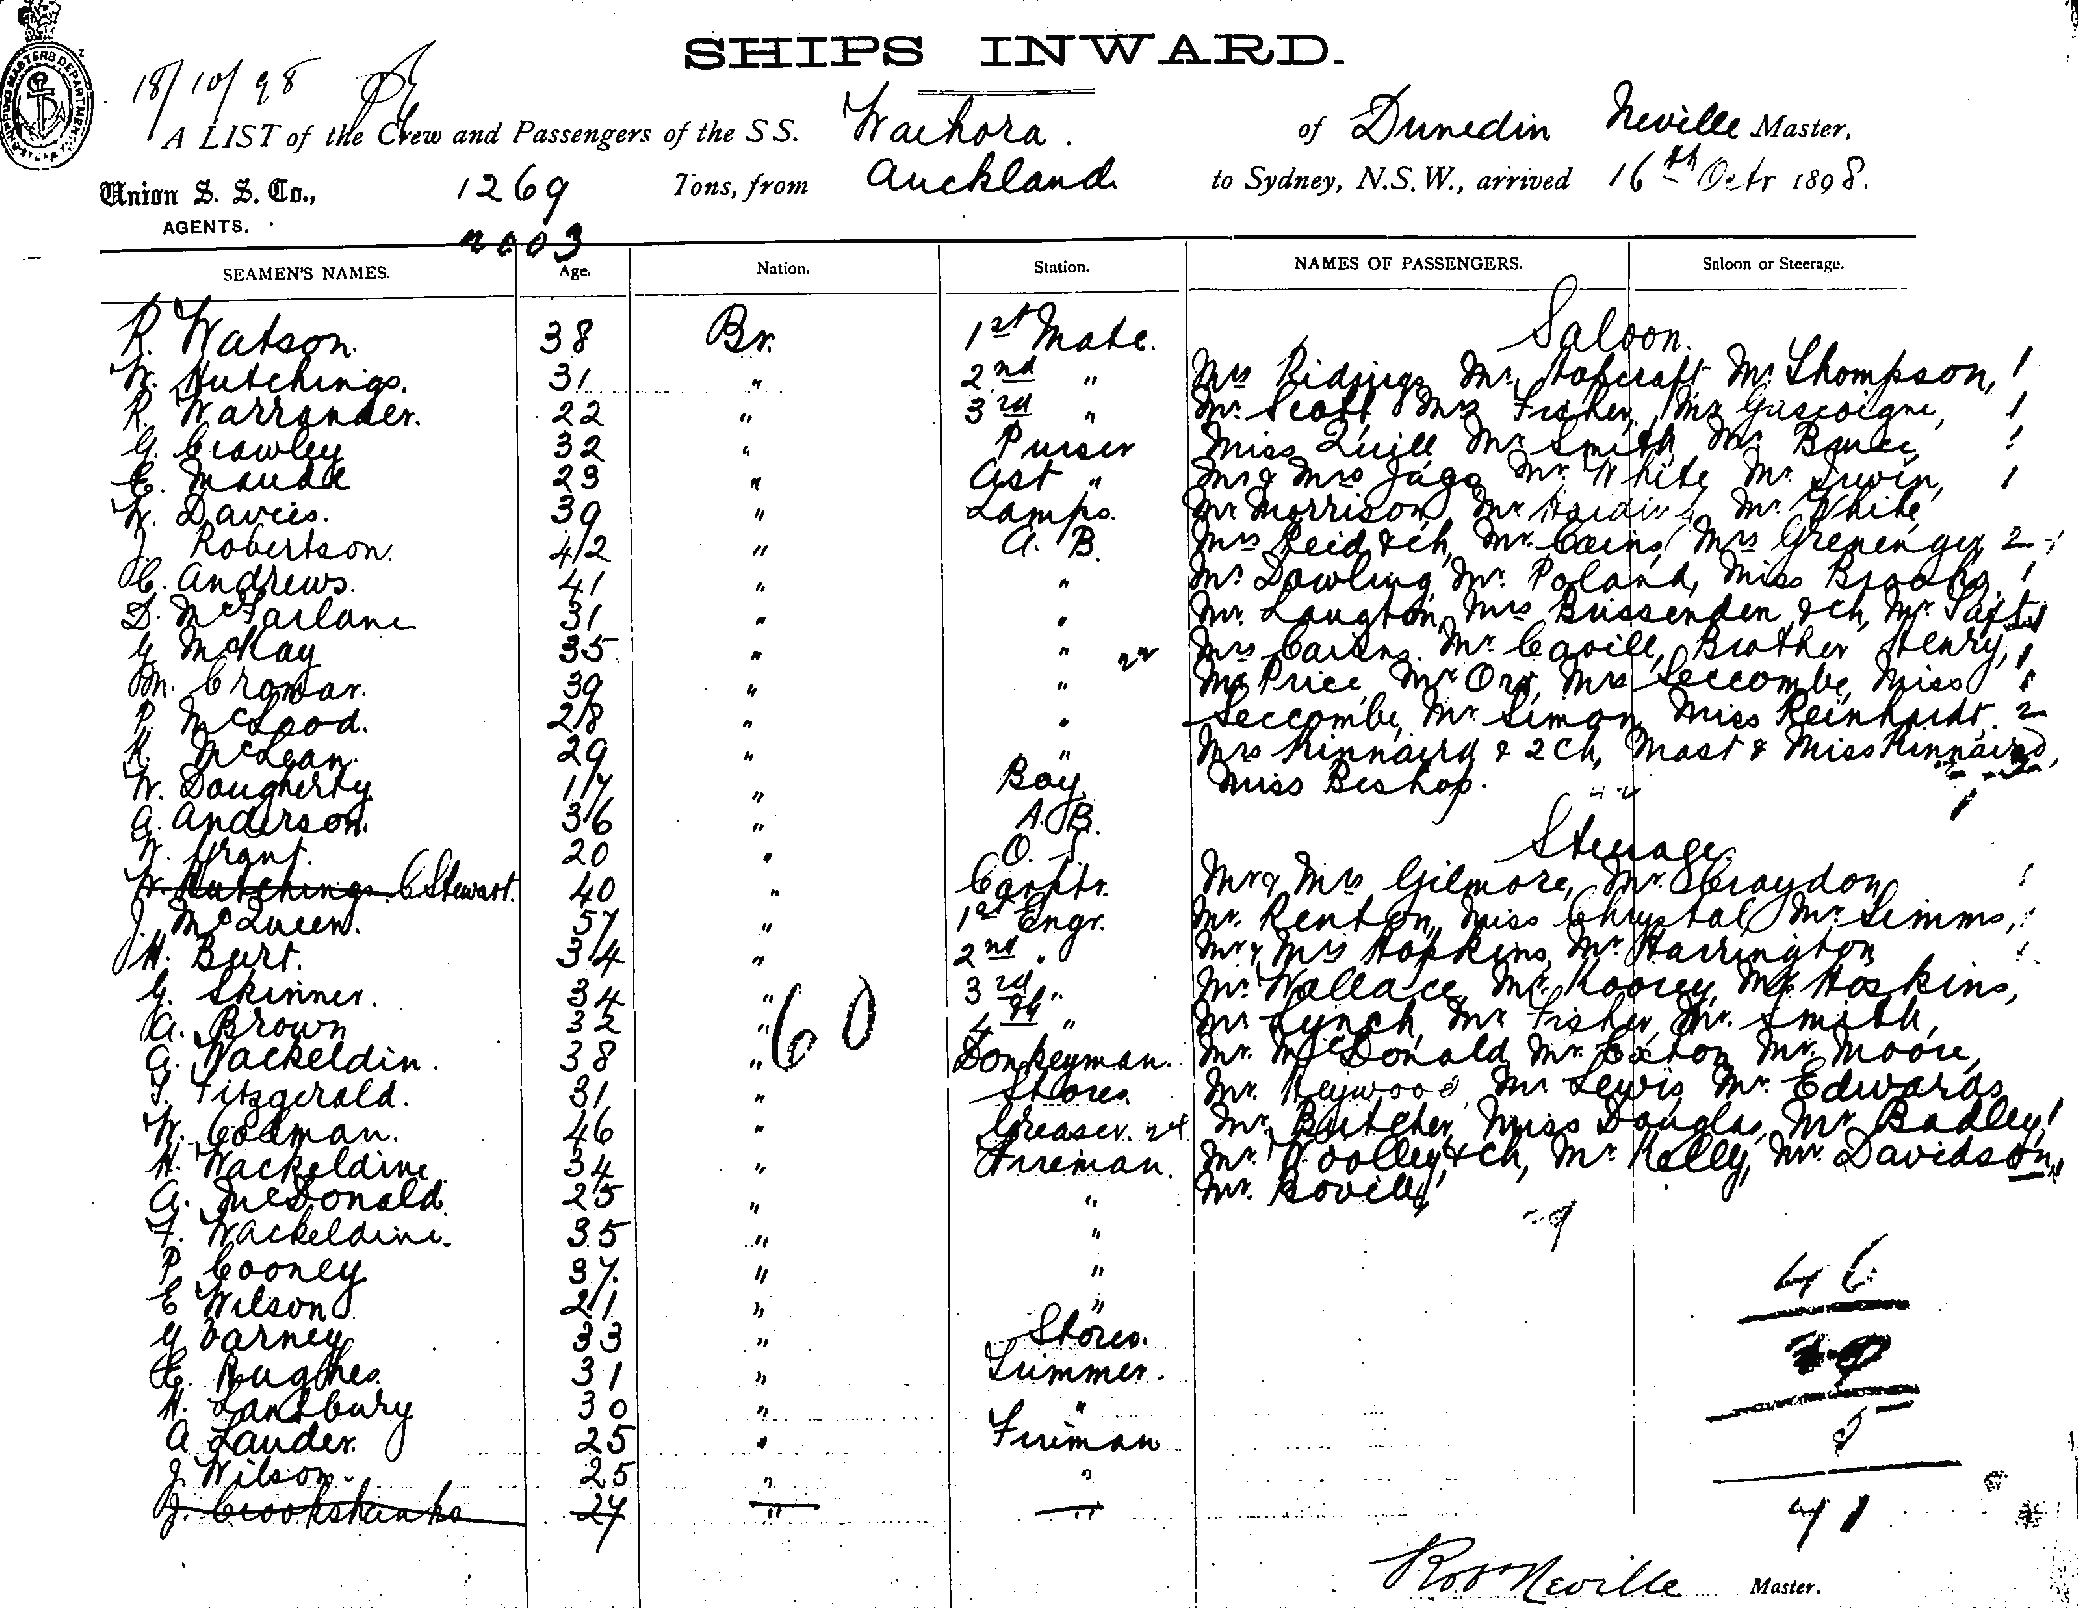 SHIPS INWARD.
18/10/98
A LIST of the Crew and Passengers of the SS. Waihora. of Dunedin Neville Master,
Union S. S. Co., 1269 Tons, from Auckland to Sydney, N.S.W., arrived 16th Octr 1898.
AGENTS.
2003
SEAMEN'S NAMES. Age. Nation. Station. NAMES OF PASSENGERS. Saloon or Steerage.
Saloon.
R. Watson. 38 Br. 1st Mate.
W. Hutchings. 31 " 2nd " Mrs Ridings Mr Hopcraft Mr Thompson, 1
R. Warrander. 22 " 3rd " Mr. Scott, Mrs Fisher, Mrs Gascoigne, 1
G. Crawley 32 " Purser Miss Quill Mr Smith Mr Bruce 1
E. Maude 23 " Ast " Mr & Mrs Jago Mr White Mr Irwin, 1
W. Davies. 39 " Lamps. Mr Morrison, Mr Harding Mr White
J. Robertson. 42 " A. B. Mrs Reid & ch, Mr. Cains, Mrs Grenenger 2
C. Andrews. 41 " " Mr Dowling Mr. Poland, Miss Brooks, 1
D. McFarlane 31 " " Mr. Laugton Mrs Bussenden & ch, Mr
G. McKay 35 " " Mrs Cairns. Mr. Cavill, Brother Henry, 1
M. Cromar. 39 " " Mr Price, Mr Orr, Mrs Seccombe, Miss 1
P. McLeod. 28 " " Seccombe, Mr Simon, Miss Reinhardt. 2
R. McLean. 29 " " Mrs Kinnaird & 2 ch, Mast & Miss Kinnaird,
W. Dougherty 17 " Boy Miss Bishop.
A. Anderson. 36 " A. B.
W. Grant. 20 " O. S. Steerage
W. Hutchings C Stewart. 40 " Carptr. Mr & Mrs Gilmore, Mr. Croydon
J. McQueen. 57 " 1st Engr. Mr. Renton, Miss Chrystal Mr Simms,
H. Burt. 34 " 2nd " Mr & Mrs Hopkins, Mr Harrington
G. Skinner. 34 " 3rd " Mr. Wallace, Mr. Rooney, Mr Hoskins,
A. Brown 32 " 4th " Mr Lynch, Mr Fisher, Mr. Smith,
60
A. Wackeldin. 38 " Donkeyman. Mr. McDonald Mr. Caxton Mr. Moore,
T. Fitzgerald. 31 " Stores. Mr. Heywood, Mr Lewis, Mr. Edwards
W. Colman. 46 " Greaser. 24 Mr. Butcher, Miss Douglas, Mr Badley 1
H. Wackeldine 34 " Fireman. Mr. Woolley & ch, Mr Kelly, Mr Davidson,
A. McDonald. 25 " " Mr. Bovill
F. Wackeldine. 35 " "
P. Cooney 37 " " 46
E Wilson 21 " "
G Varney 33 " Stores.
C. Hughes 31 " Trimmer.
H. Lansbury 30 " "
A Lauder. 25 " Fireman
J. Wilson. 25 " "
J. Crookshanks 27 " " 41
Robt Neville Master.